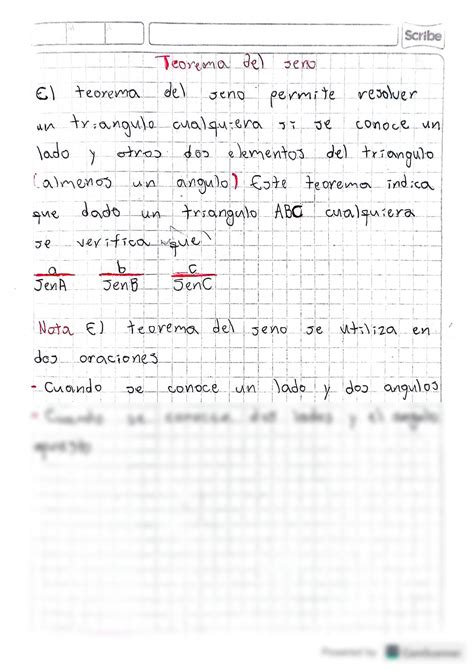 Scribe
Teorema del seno
El teorema del seno permite resolver
un triangulo cualquiera si se conoce un
lado y otros dos elementos del triangulo
(almenos un angulo) Este teorema indica
que dado un triangulo ABC cualquiera
se verifica que
a b c
SenA SenB SenC
Nota El teorema del seno se utiliza en
dos oraciones
- Cuando se conoce un lado y dos angulos
- Cuando se conoce dos lados y el angulo
opuesto
Powered by CamScanner